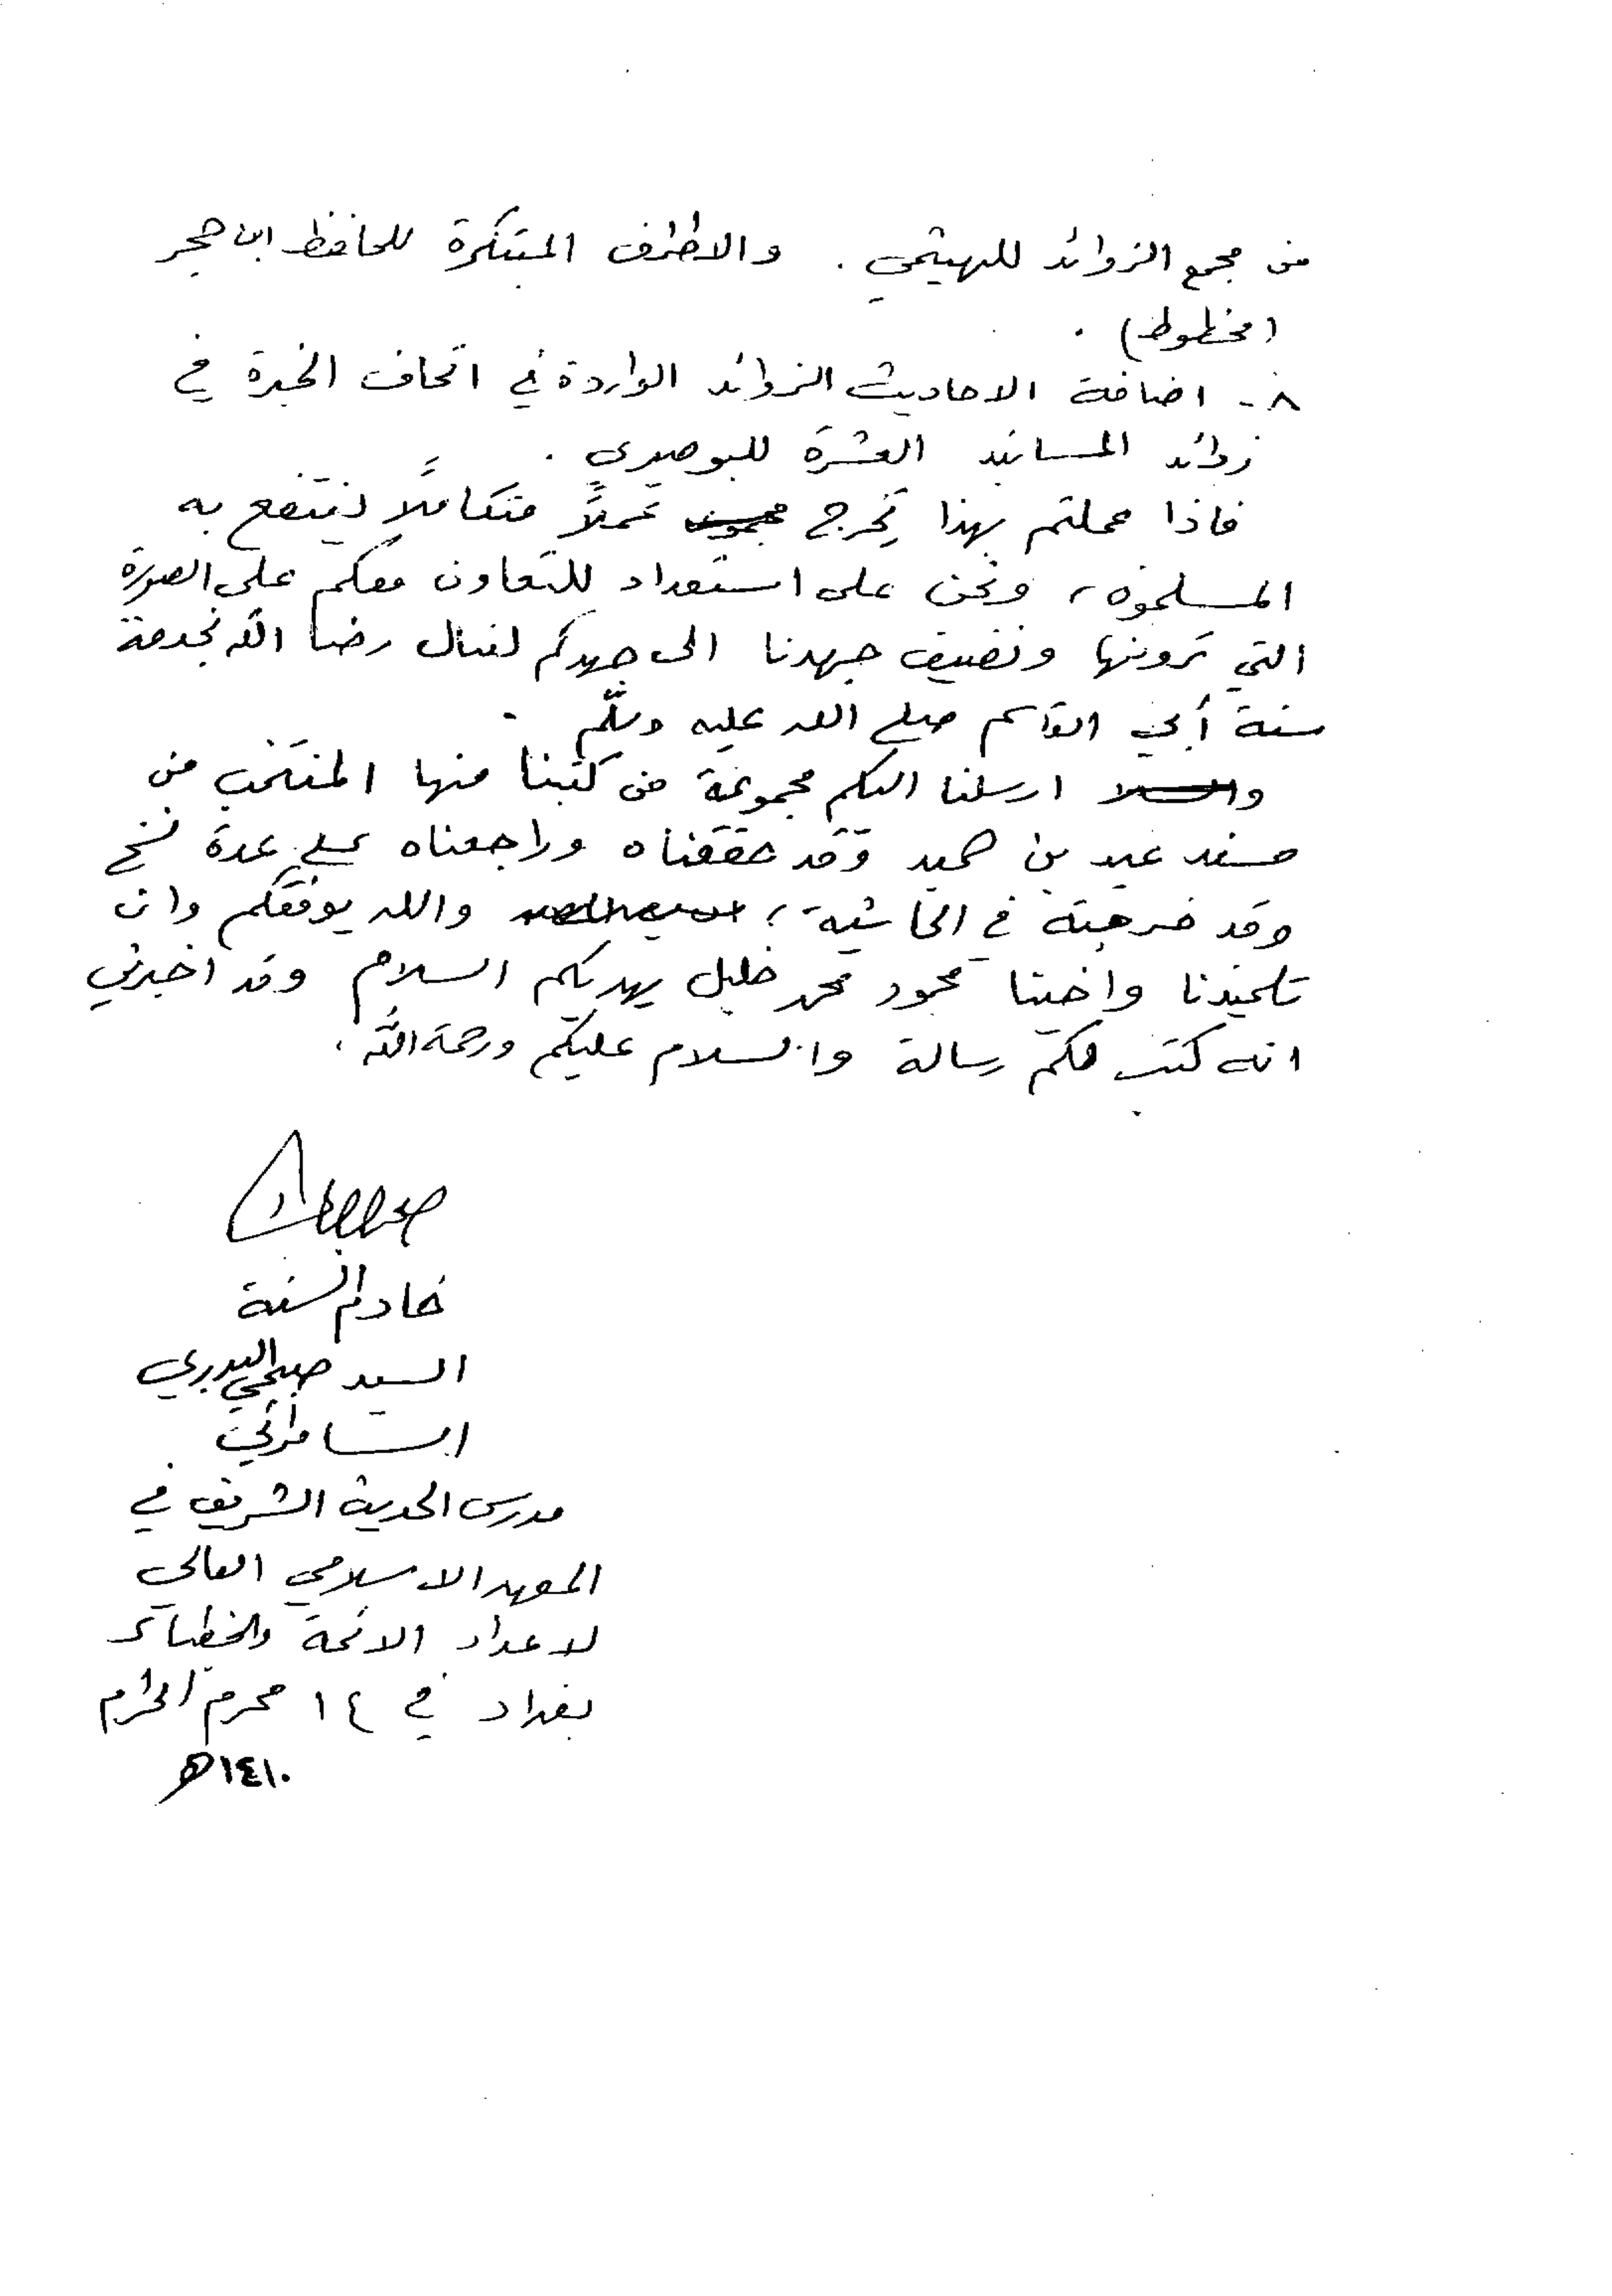 من مجمع الزوائد للهيثمي . والاطراف المبتكرة للحافظ ابن حجر
(مخطوط) .
٨ - اضافة الاحاديث الزوائد الواردة في اتحاف الخيرة في
زوائد المسانيد العشرة للبوصيري .
فاذا عملتم بهذا يخرج عملاً متكاملاً لينتفع به
المسلمون ، ونحن على استعداد للتعاون معكم على الصورة
التي ترونها ونضيف جهدنا الى جهدكم لننال رضا الله بخدمة
سنة أبي القاسم صلى الله عليه وسلّم .
ارسلنا اليكم مجموعة من كتبنا منها المنتخب من
مسند عبد بن حميد وقد حققناه وراجعناه على عدة نسخ
وقد خرجته في الحاشية ، والله يوفقكم وان
تلميذنا واخينا محمود محمد خليل يهديكم السلام وقد اخبرني
انه كتب لكم رسالة والسلام عليكم ورحمة الله .
خادم السنة
السيد صبحي البدري
السامرائي
مدرس الحديث الشريف في
المعهد الاسلامي العالي
لاعداد الائمة والخطباء
بغداد في ١٤ محرم الحرام
١٤١٠هـ